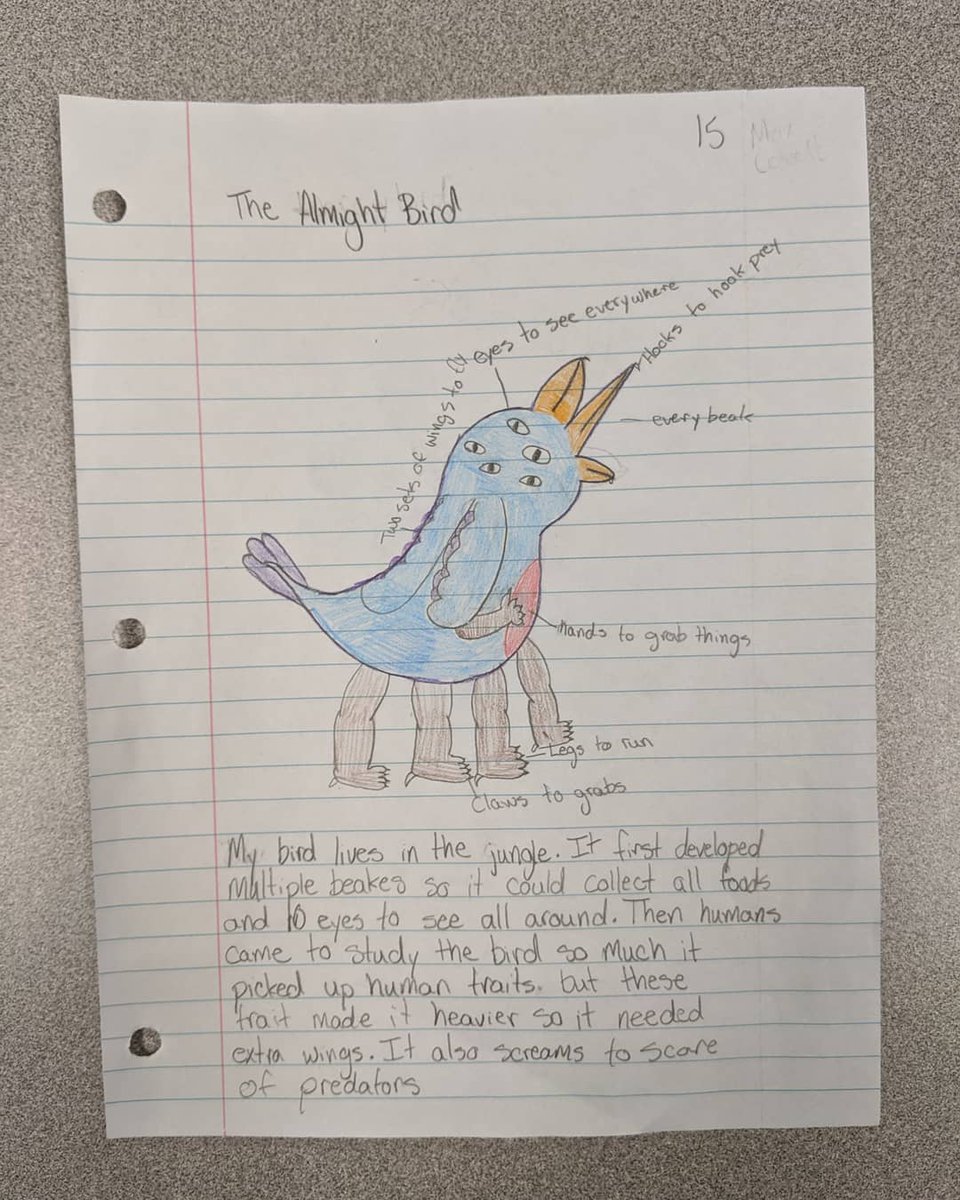 15
The Almight Bird
Two sets of wings to fly
eyes to see everywhere
Hooks to hook prey
every beak
Hands to grab things
Legs to run
Claws to grabs
My bird lives in the jungle. It first developed
multiple beakes so it could collect all foods
and 10 eyes to see all around. Then humans
came to study the bird so much it
picked up human traits. but these
trait made it heavier so it needed
extra wings. It also screams to scare
of predators